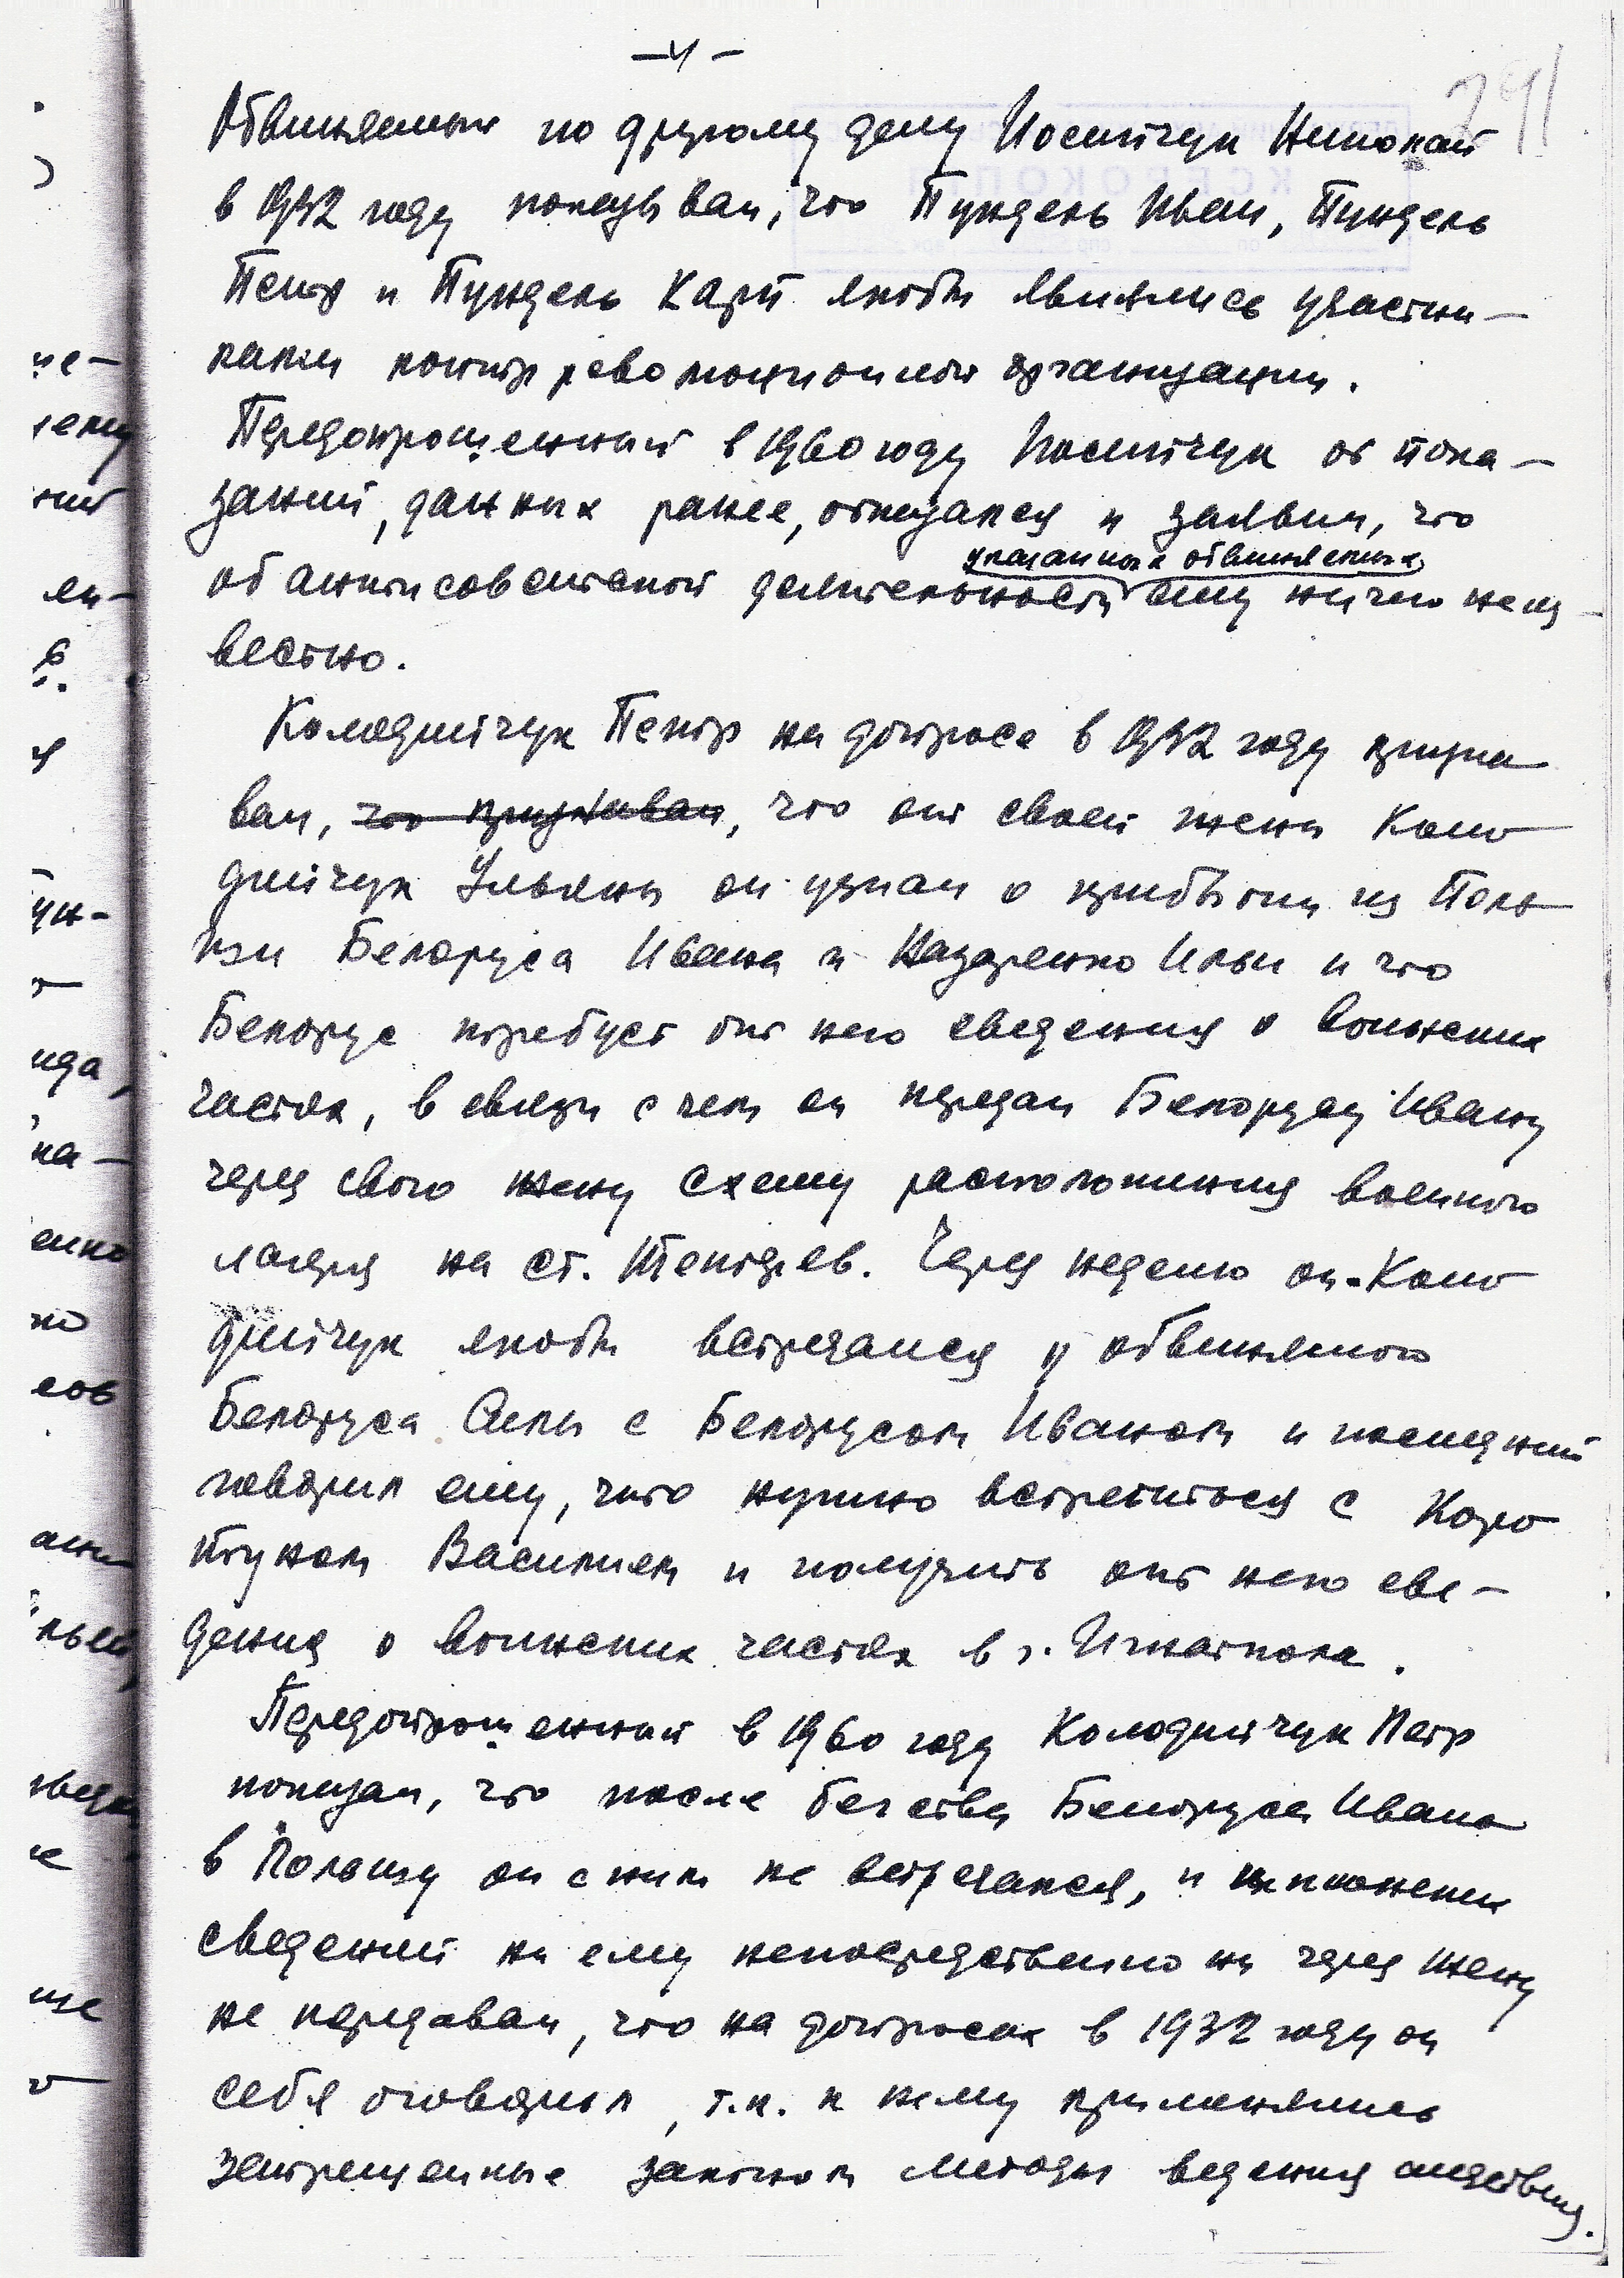 -4-
291
Обвиняемый по другому делу Иосипчук Николай
в 1932 году показывал, что Пундель Иван, Пундель
Петр и Пундель Карп якобы являлись участни-
ками контрреволюционной организации.
Передопрошенный в 1960 году Иосипчук от пока-
заний, данных ранее, отказался и заявил, что
указанных обвиняемых
об антисоветской деятельности ему ничего неиз-
вестно.
Колодийчук Петр на допросе в 1932 году призна
вал, что признавал, что от своей жены Коло
дийчук Ульяны он узнал о прибытии из Поль
ши Белоруса Ивана и Назаренко Ильи и что
Белорус требует от него сведения о воинских
частях, в связи с чем он передал Белорусу Ивану
через свою жену схему расположения военного
лагеря на ст. Тетерев. Через неделю он-Коло
дийчук якобы встречался у обвиняемого
Белоруса с Белорусом Иваном и последний
говорил ему, что нужно встретиться с Коро
Василием и получить от него све-
дения о воинских частях в с. Игнатполе.
Передопрошенный в 1960 году Колодийчук Петр
показал, что после бегства Белоруса Ивана
в Польшу он с ним не встречался, и шпионских
сведений ни ему непосредственно ни через жену
не передавал, что на допросах в 1932 году он
себя оговорил, т.к. к нему применялись
запрещенные законом методы ведения следствия.